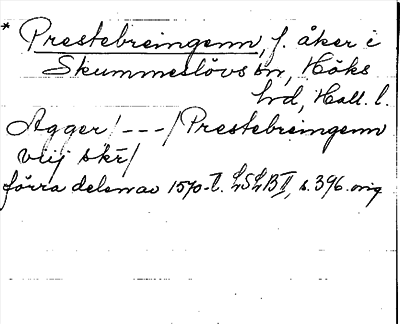 * Prestebreingenn, f. åker i
Skummeslövs sn, Höks
hrd, Hall. l.
Agger /---/ Prestebreingenn
viij skr̄/
förra delen av 1570-t. LSLB II, s. 396. orig.